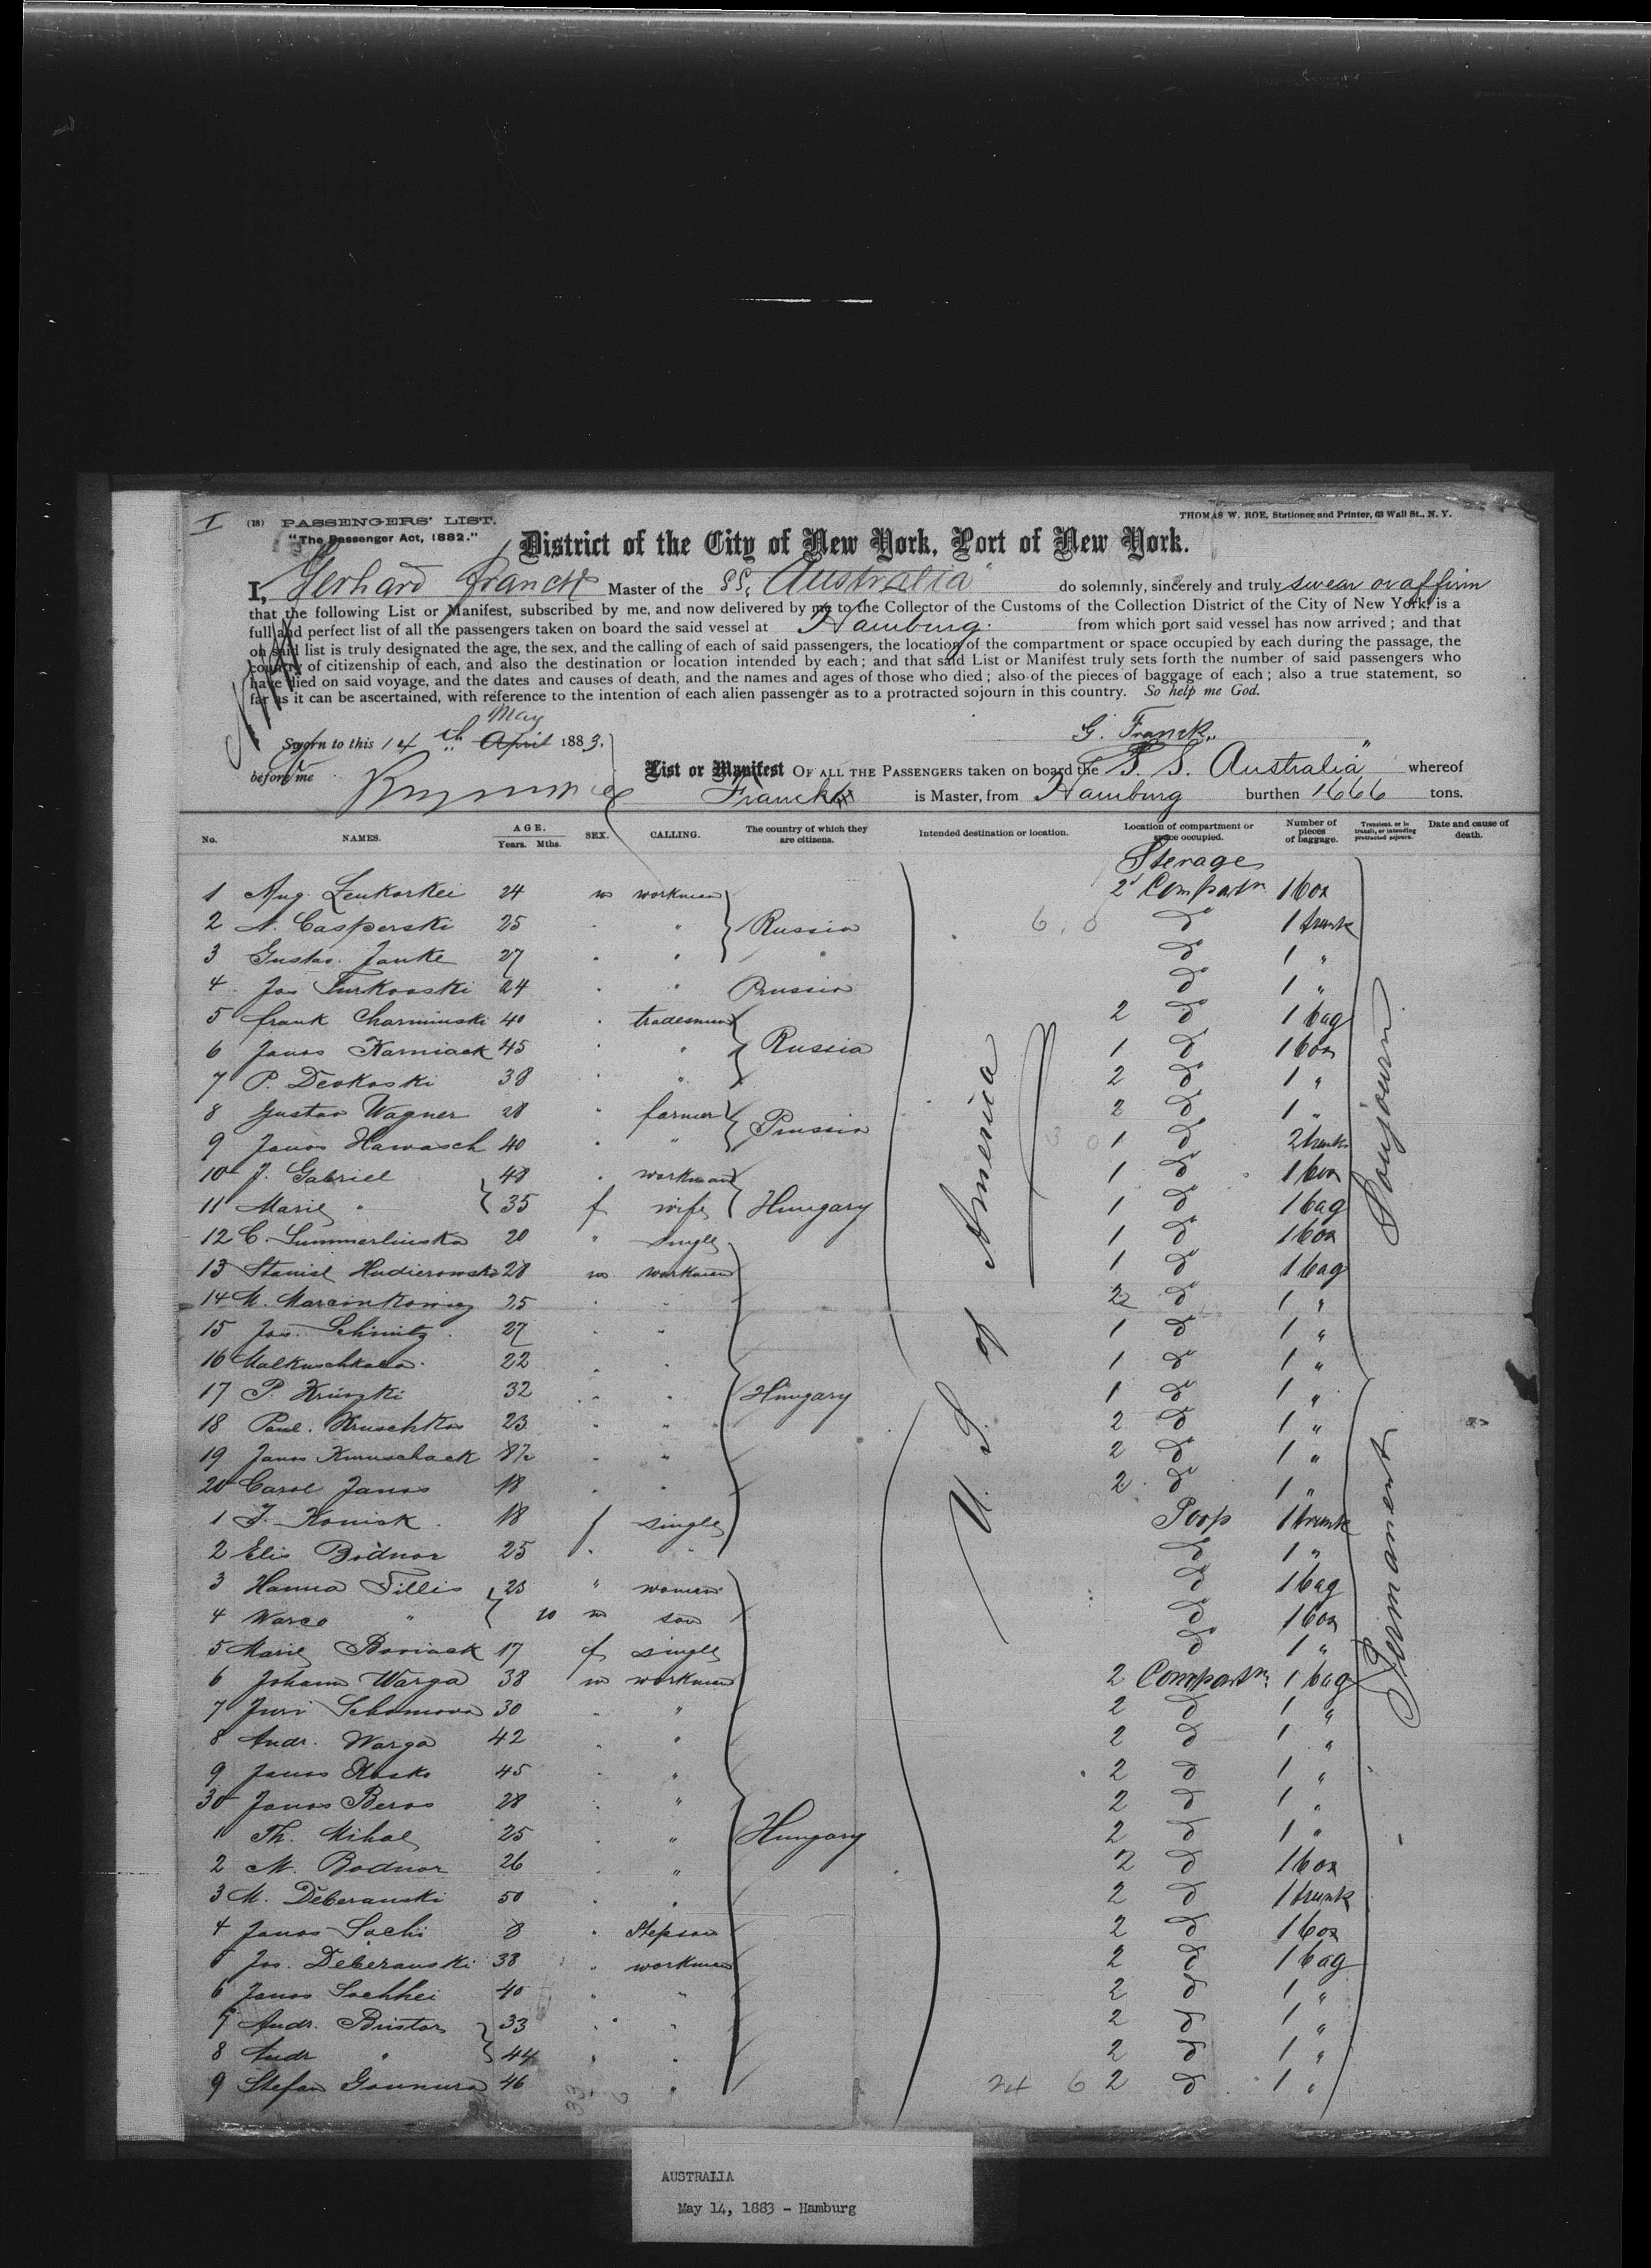 I
(18) PASSENGERS' LIST.
THOMAS W. ROE, Stationer and Printer, 63 Wall St., N. Y.
"The Passenger Act, 1882."
District of the City of New York, Port of New York.
I, Gerhard Franck Master of the SS. "Australia" do solemnly, sincerely and truly swear or affirm
that the following List or Manifest, subscribed by me, and now delivered by me to the Collector of the Customs of the Collection District of the City of New York, is a
full and perfect list of all the passengers taken on board the said vessel at Hamburg. from which port said vessel has now arrived; and that
on said list is truly designated the age, the sex, and the calling of each of said passengers, the location of the compartment or space occupied by each during the passage, the
country of citizenship of each, and also the destination or location intended by each; and that said List or Manifest truly sets forth the number of said passengers who
have died on said voyage, and the dates and causes of death, and the names and ages of those who died; also of the pieces of baggage of each; also a true statement, so
far as it can be ascertained, with reference to the intention of each alien passenger as to a protracted sojourn in this country. So help me God.
May
Sworn to this 14th April 1883.
G. Franck.
before me
List or Manifest OF ALL THE PASSENGERS taken on board the S. S. Australia" whereof
Franck is Master, from Hamburg burthen 1666 tons.
No. NAMES. AGE. Years. Mths. SEX. CALLING. The country of which they are citizens. Intended destination or location. Location of compartment or space occupied. Number of pieces of baggage. Transient, or in transit, or intending protracted sojourn. Date and cause of death.
Sterage
1 Aug. Zenkorkei 24 m workman 2 Compartm 1 box
2 A. Casperski 25 " Russia do 1 trunk
3 Gustav. Janke 27 " " do 1 "
4 Jos Turkowski 24 " Prussia do 1 "
5 Frank Charminski 40 tradesman 2 do 1 bag
6 Janos Karniack 45 " Russia 1 do 1 box
7 P. Devkoski 38 " 2 do 1 "
8 Gustav Wagner 28 " farmer 2 do 1 "
9 Janos Hawasch 40 " Prussia 1 do 2 trunks
10 J. Gabriel 48 workman 1 do 1 box
11 Marie " 35 f wife Hungary 1 do 1 bag
12 C. Summerlinska 20 " single 1 do 1 box
13 Stanisl Hudierowski 28 m workman 1 do 1 bag
14 M. Marcinkowicz 25 2 do 1 "
15 Jos. Schmitz 27 " 1 do 1 "
16 Malkuschkala 22 1 do 1 "
17 P. Krinzki 32 Hungary 1 do 1 "
18 Paul. Kruschka 23 " " 2 do 1 "
19 Janos Kuruschack " 2 do 1 "
20 Carol Janos 18 2 do 1 "
1 J. Koniak 18 f single Poop 1 trunk
2 Elis Bodnar 25 " do 1 "
3 Hanna Tillis 23 " woman do 1 bag
4 " 10 m son do 1 box
5 Marie Boriack 17 f single do 1 "
6 Johann Warga 38 m workman 2 Compartm. 1 bag
7 Juri Schomova 30 " 2 do 1 "
8 Andr. Warga 42 " 2 do 1 "
9 Janos Kosko 45 " 2 do 1 "
30 Janos Beros 28 " 2 do 1 "
1 Th. Mihal 25 " Hungary 2 do 1 "
2 M. Bodnar 26 " 2 do 1 box
3 M. Deberanski 50 " 2 do 1 trunk
4 Janos Sochi 8 Stepson 2 do 1 box
5 Jos. Deberanski 38 " workman 2 do 1 bag
6 Janos Sochhei 40 " " 2 do 1 "
7 Andr. Bristor 33 " 2 do 1 "
8 Andr " 44 2 do 1 "
9 Stefan Gounura 46 " 24 6 2 do 1 "
U. S. of America
Permanent Soujourn
AUSTRALIA
May 14, 1883 - Hamburg